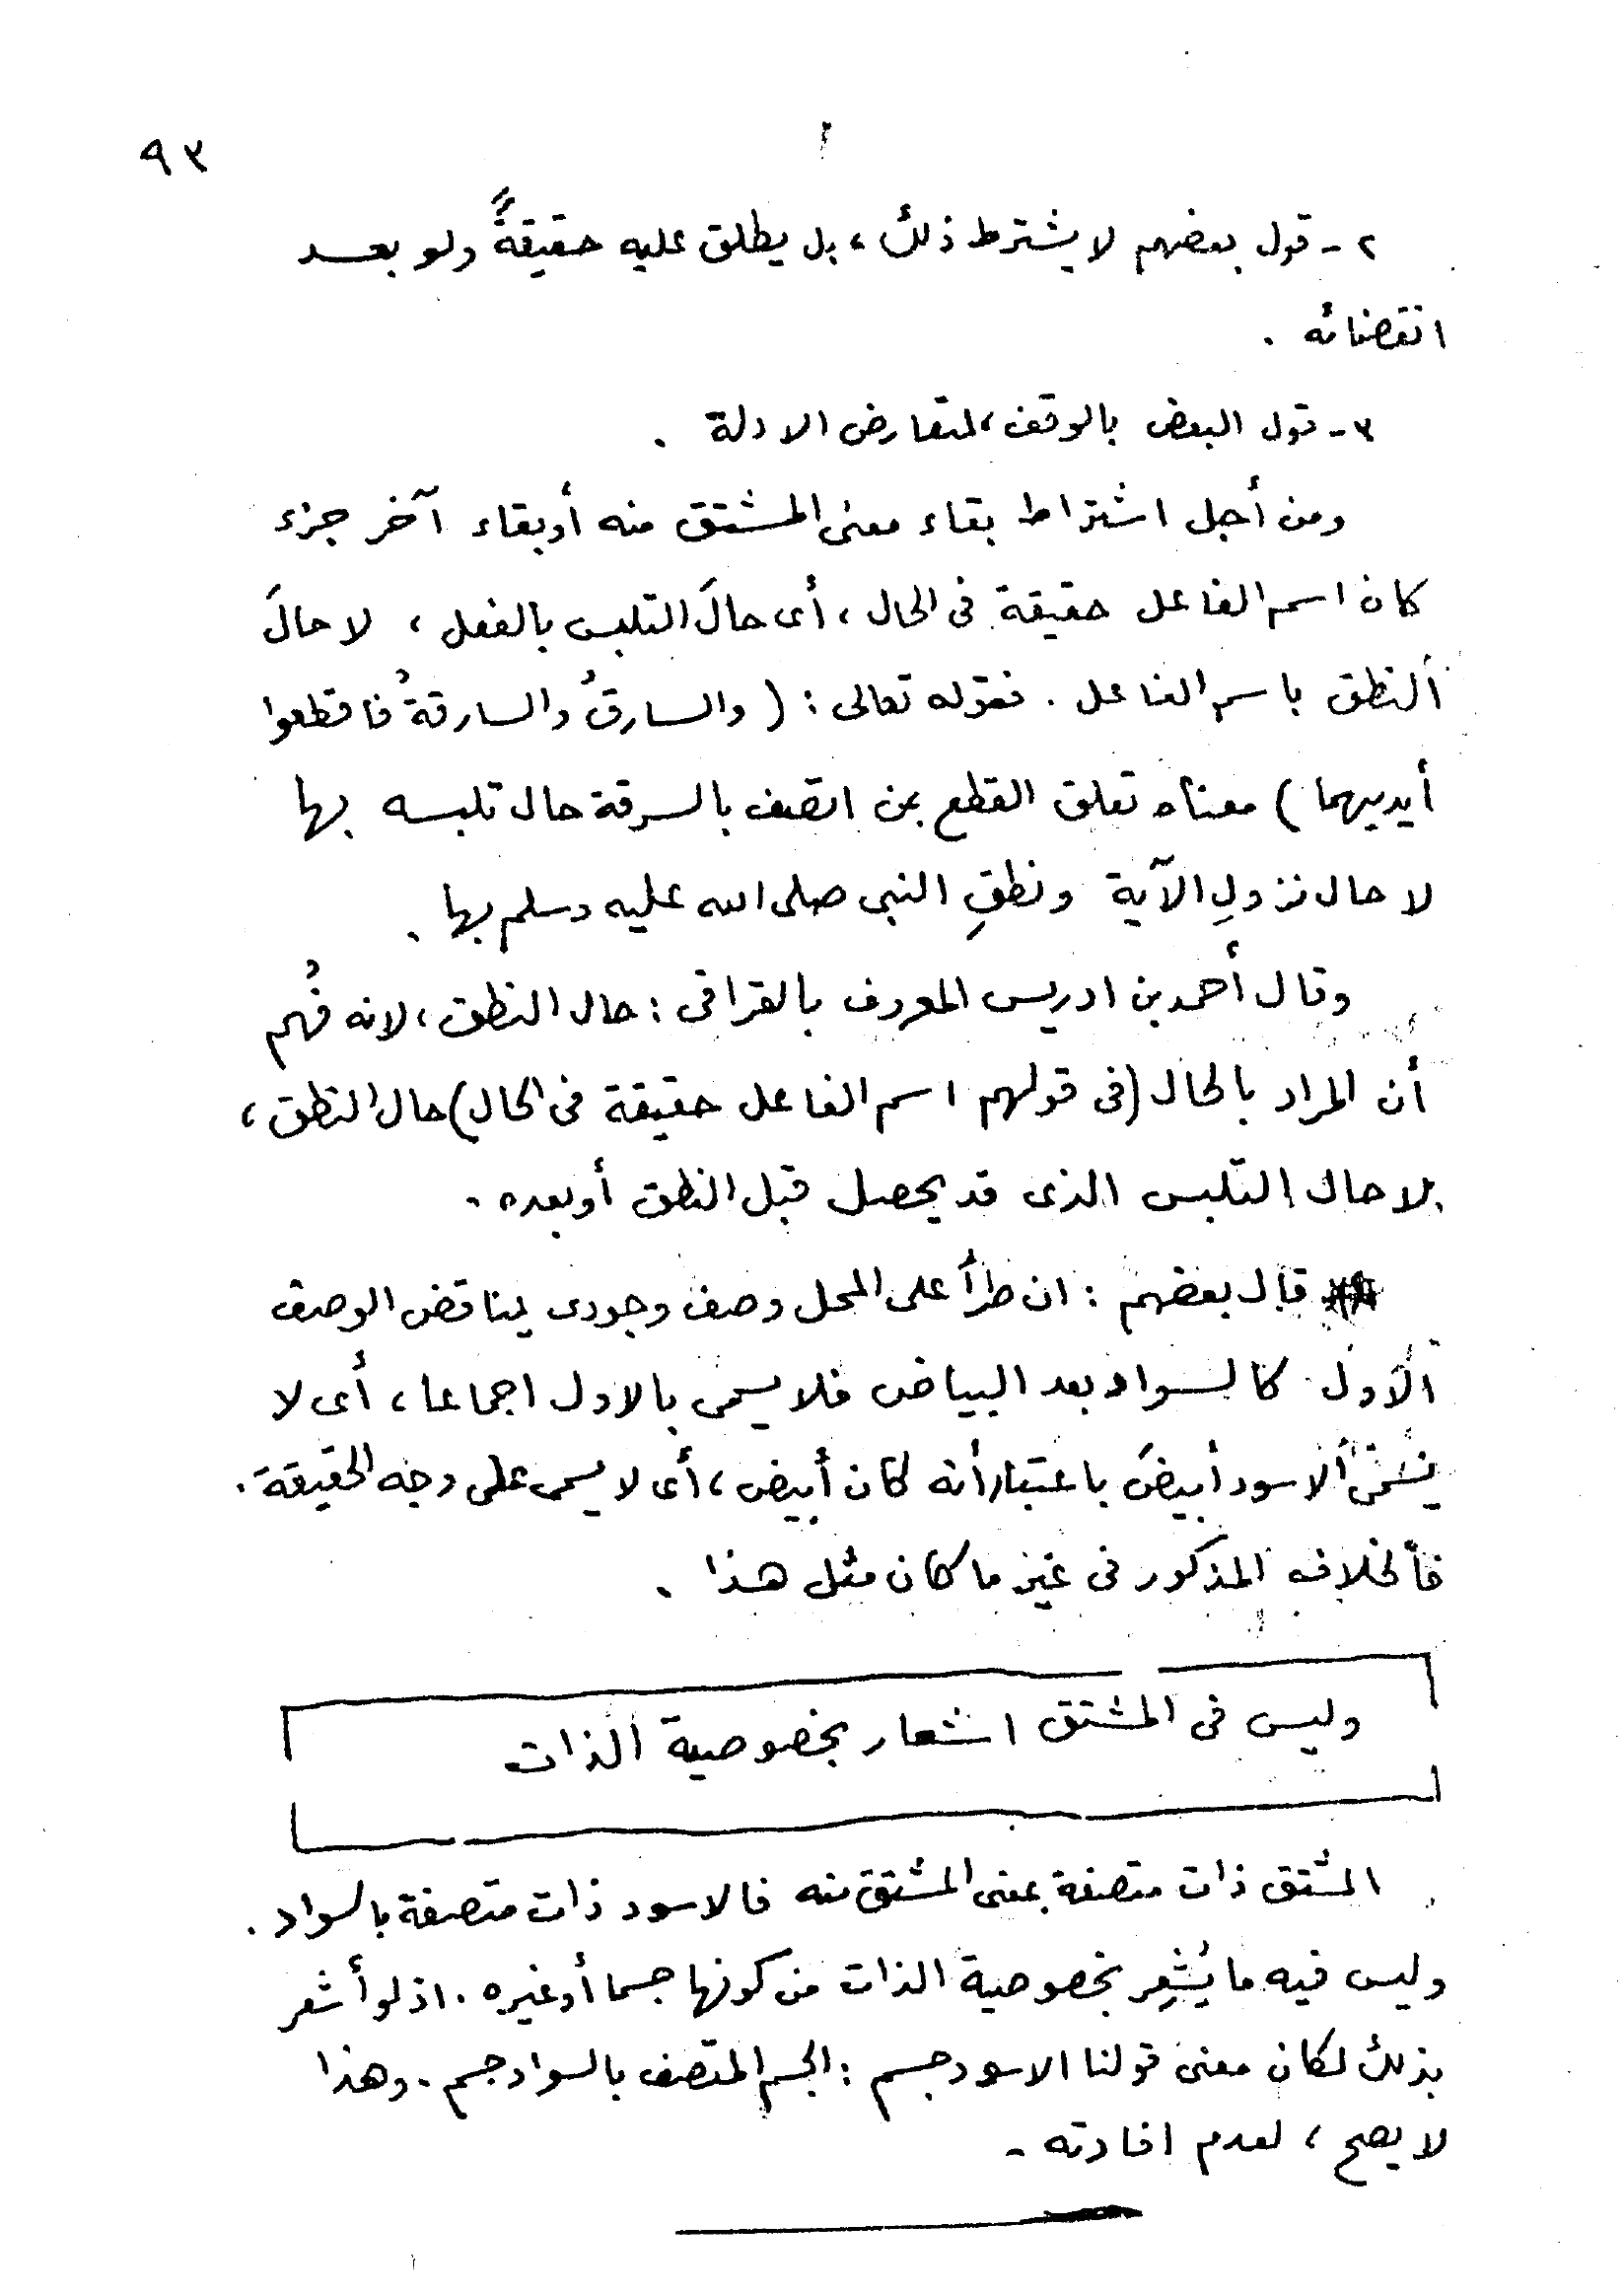 ٩٣
٢ - قول بعضهم لا يشترط ذلك ، بل يطلق عليه حقيقةً ولو بعد
انقضائه .
٣ - قول البعض بالوقف ، لتعارض الادلة .
ومن أجل اشتراط بقاء معنى المشتق منه أو بقاء آخر جزء
كان اسم الفاعل حقيقة فى الحال ، أى حالَ التلبس بالفعل ، لا حالَ
النطق باسم الفاعل . فقوله تعالى : ( والسارقُ والسارقةُ فاقطعوا
أيديهما ) معناه تعلق القطع بمن اتصف بالسرقة حال تلبسه بها
لا حال نزولِ الآية ونطقِ النبى صلى الله عليه وسلم بها .
وقال أحمد بن ادريس المعروف بالقرافى : حال النطق ، لانه فُهم
أن المراد بالحال (فى قولهم اسم الفاعل حقيقة فى الحال) حال النطق ،
لا حال التلبس الذى قد يحصل قبل النطق أو بعده .
قال بعضهم : ان طرأ على المحل وصف وجودى يناقض الوصف
الأول كالسواد بعد البياض فلا يسمى بالاول اجماعا ، أى لا
يسمى الاسود أبيضَ باعتبار أنه كان أبيض ، أى لا يسمى على وجه الحقيقة .
فالخلاف المذكور فى غير ما كان مثل هذا .
وليس فى المشتق اشعار بخصوصية الذات
المشتق ذات متصفة بمعنى المشتق منه فالاسود ذات متصفة بالسواد .
وليس فيه ما يُشعِر بخصوصية الذات من كونها جسما أو غيره . اذ لو أشعر
بذلك لكان معنى قولنا الاسود جسم : الجسم المتصف بالسواد جسم . وهذا
لا يصح ، لعدم افادته -